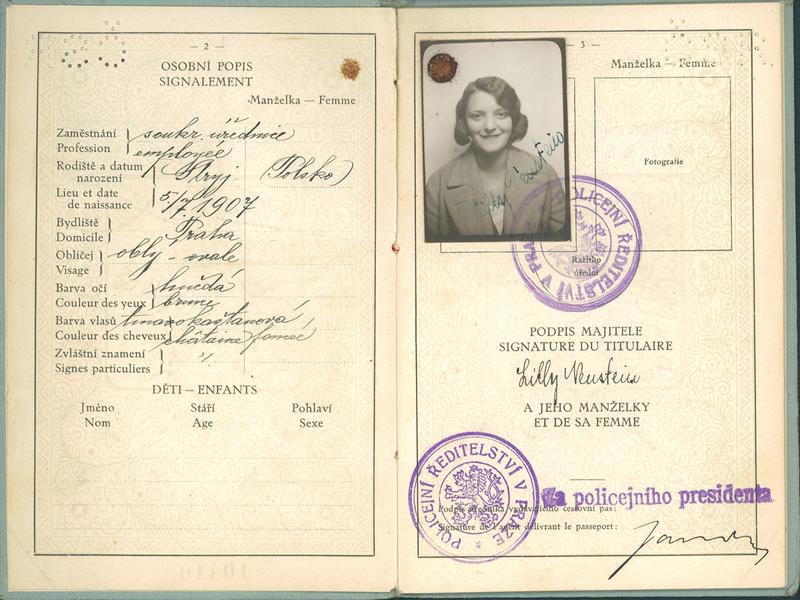 — 2 —
OSOBNÍ POPIS
SIGNALEMENT
Manželka — Femme
Zaměstnání soukr. úřednice
Profession employée
Rodiště a datum narození Stryj (Polsko)
Lieu et date de naissance 5/7 1907
Bydliště Praha
Domicile
Obličej oblý - ovale
Visage
Barva očí hnědá
Couleur des yeux brune
Barva vlasů tmavokaštanová
Couleur des cheveux châtaine foncé
Zvláštní znamení
Signes particuliers
DĚTI — ENFANTS
Jméno Stáří Pohlaví
Nom Age Sexe
— 3 —
Manželka — Femme
Fotografie
Lilly Neustein
POLICEJNÍ ŘEDITELSTVÍ V PRAZE
Razítko
úřední
PODPIS MAJITELE
SIGNATURE DU TITULAIRE
Lilly Neustein
A JEHO MANŽELKY
ET DE SA FEMME
POLICEJNÍ ŘEDITELSTVÍ V PRAZE
Za policejního presidenta
Podpis úředníka vydávajícího cestovní pas:
Signature de l'agent délivrant le passeport: